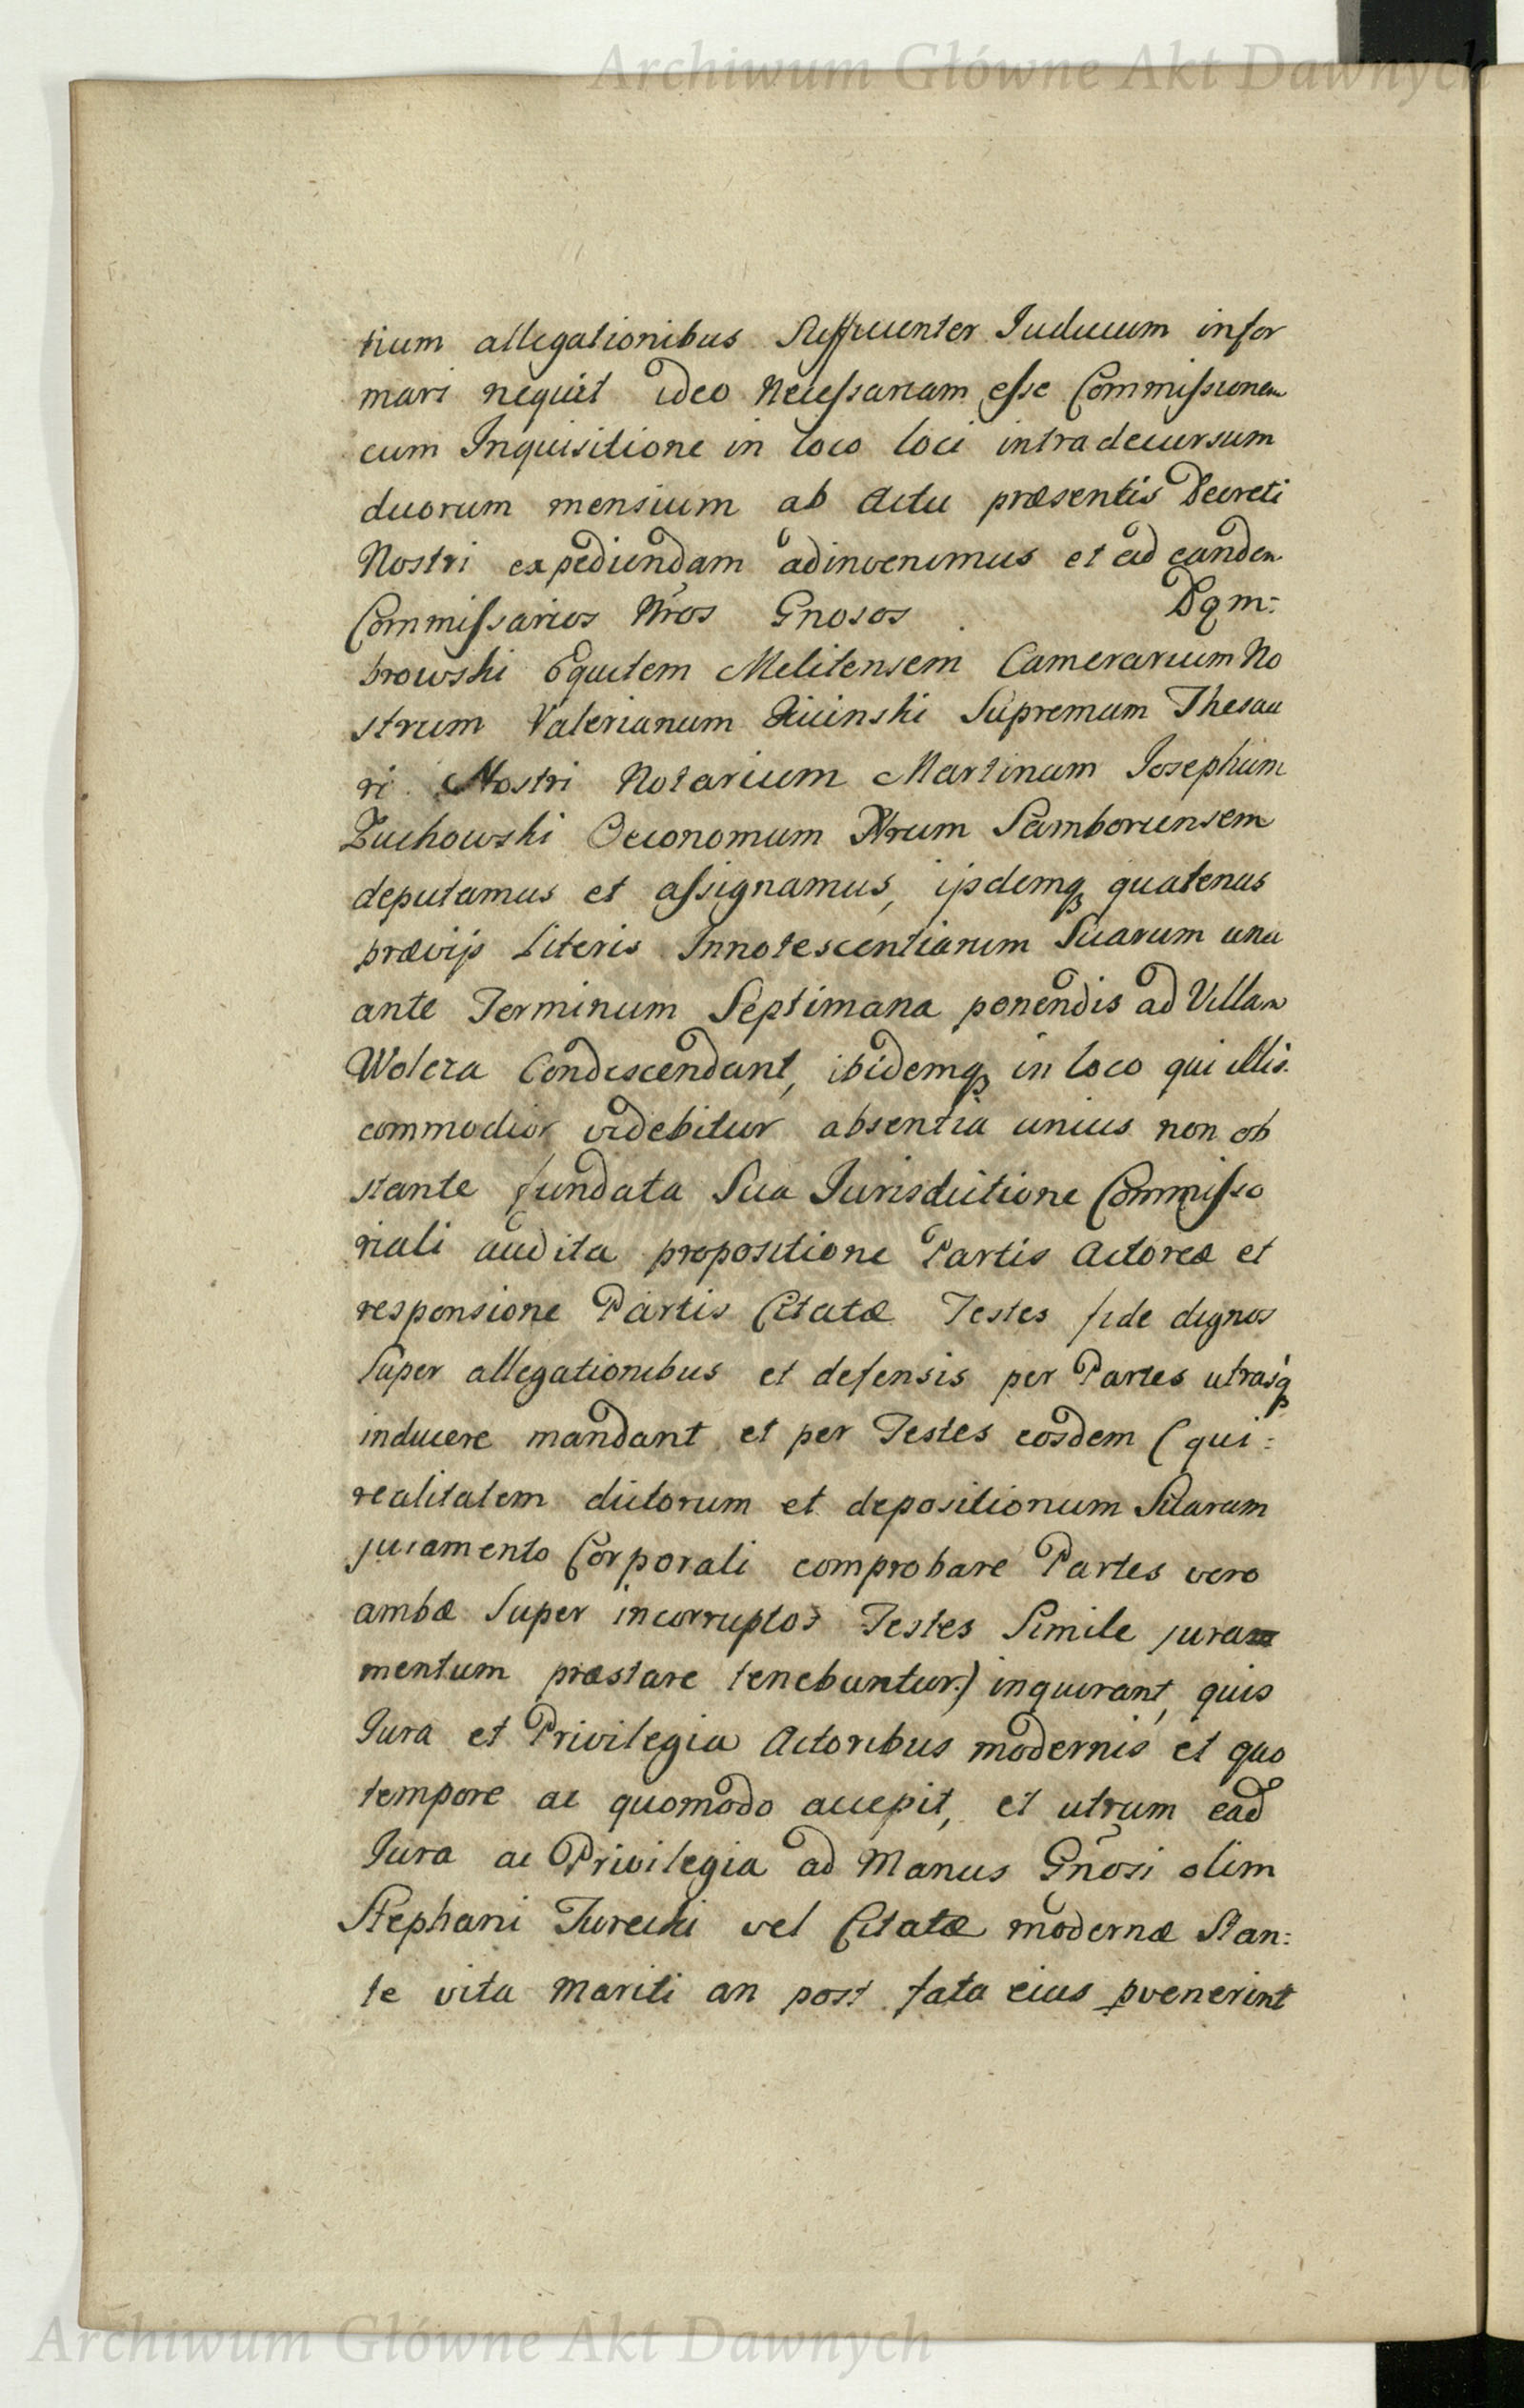 Archiwum Główne Akt Dawnych
tium allegationibus Sufficienter Iudicium infor
mari nequit ideo Necessariam esse Commissionem
cum Inquisitione in loco loci intra decursum
duorum mensium ab Actu præsentis Decreti
Nostri expediendam adinvenimus et ad eandem
Commissarios Nros Gnosos Dąm:
browski Equitem Melitensem Camerarium No
strum Valerianum Supremum Thesau
ri Nostri Notarium Martinum Iosephum
Zuchowski Oeconomum Nrum Samboriensem
deputamus et assignamus, ijsdemq quatenus
prævijs Literis Innotescentiarum Suarum una
ante Terminum Septimana ponendis ad Villam
Wolcza Condescendant, ibidemq in loco qui illis
commodior videbitur absentia unius non ob
stante fundata Sua Iurisdictione Commisso
riali audita propositione Partis Actoreæ et
responsione Partis Citatæ Testes fide dignos
Super allegationibus et defensis per Partes utrasq
inducere mandant et per Testes eosdem (qui:
realitatem dictorum et depositionum Suarum
juramento Corporali comprobare Partes vero
ambæ Super incorruptos Testes Simile jura
mentum præstare tenebuntur.) inquirant, quis
Iura et Privilegia Actoribus modernis et quo
tempore ac quomodo accepit, et utrum ead
Iura ac Privilegia ad Manus Gnosi olim
Stephani Turecki vel Citatæ modernæ Stan:
te vita Mariti an post fata eius pvenerint
Archiwum Główne Akt Dawnych